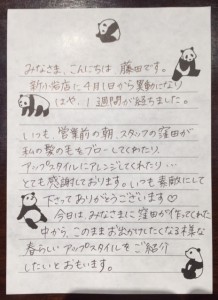 みなさま、こんにちは 藤田です。
新小岩店に、4月1日から異動になり
はや、1週間が経ちました。
いつも、営業前の朝、スタッフの窪田が
私の髪の毛をブローしてくれたり
アップスタイルにアレンジしてくれたり…
とても感謝しております。いつも素敵にして
下さってありがとうございます♡
今日は、みなさまに窪田が作ってくれた
中から、このままお出かけしたくなる様な
春らしいアップスタイルをご紹介
したいとおもいます。